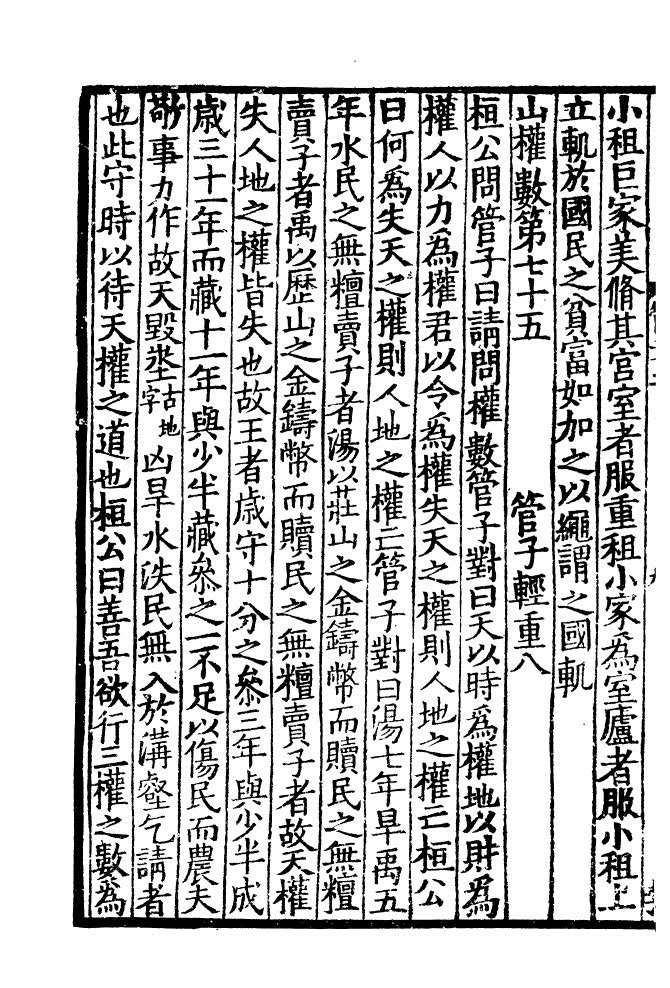 小租巨家美脩其宮室者服重租小家爲室廬者服小租上
立軌於國民之貧富如加之以繩謂之國軌
山權數第七十五　管子輕重八
桓公問管子曰請問權數管子對曰天以時爲權地以財爲
權人以力爲權君以令爲權失天之權則人地之權亡桓公
曰何爲失天之權則人地之權亡管子對曰湯七年旱禹五
年水民之無𥼷賣子者湯以莊山之金鑄幣而贖民之無𥼷
賣子者禹以歷山之金鑄幣而贖民之無𥼷賣子者故天權
失人地之權皆失也故王者歳守十分之叅三年與少半成
歳三十一年而藏十一年與少半藏叅之一不足以傷民而農夫
敬事力作故天毀埊古地字凶旱水泆民無入於溝壑乞請者
也此守時以待天權之道也桓公曰善吾欲行三權之數爲